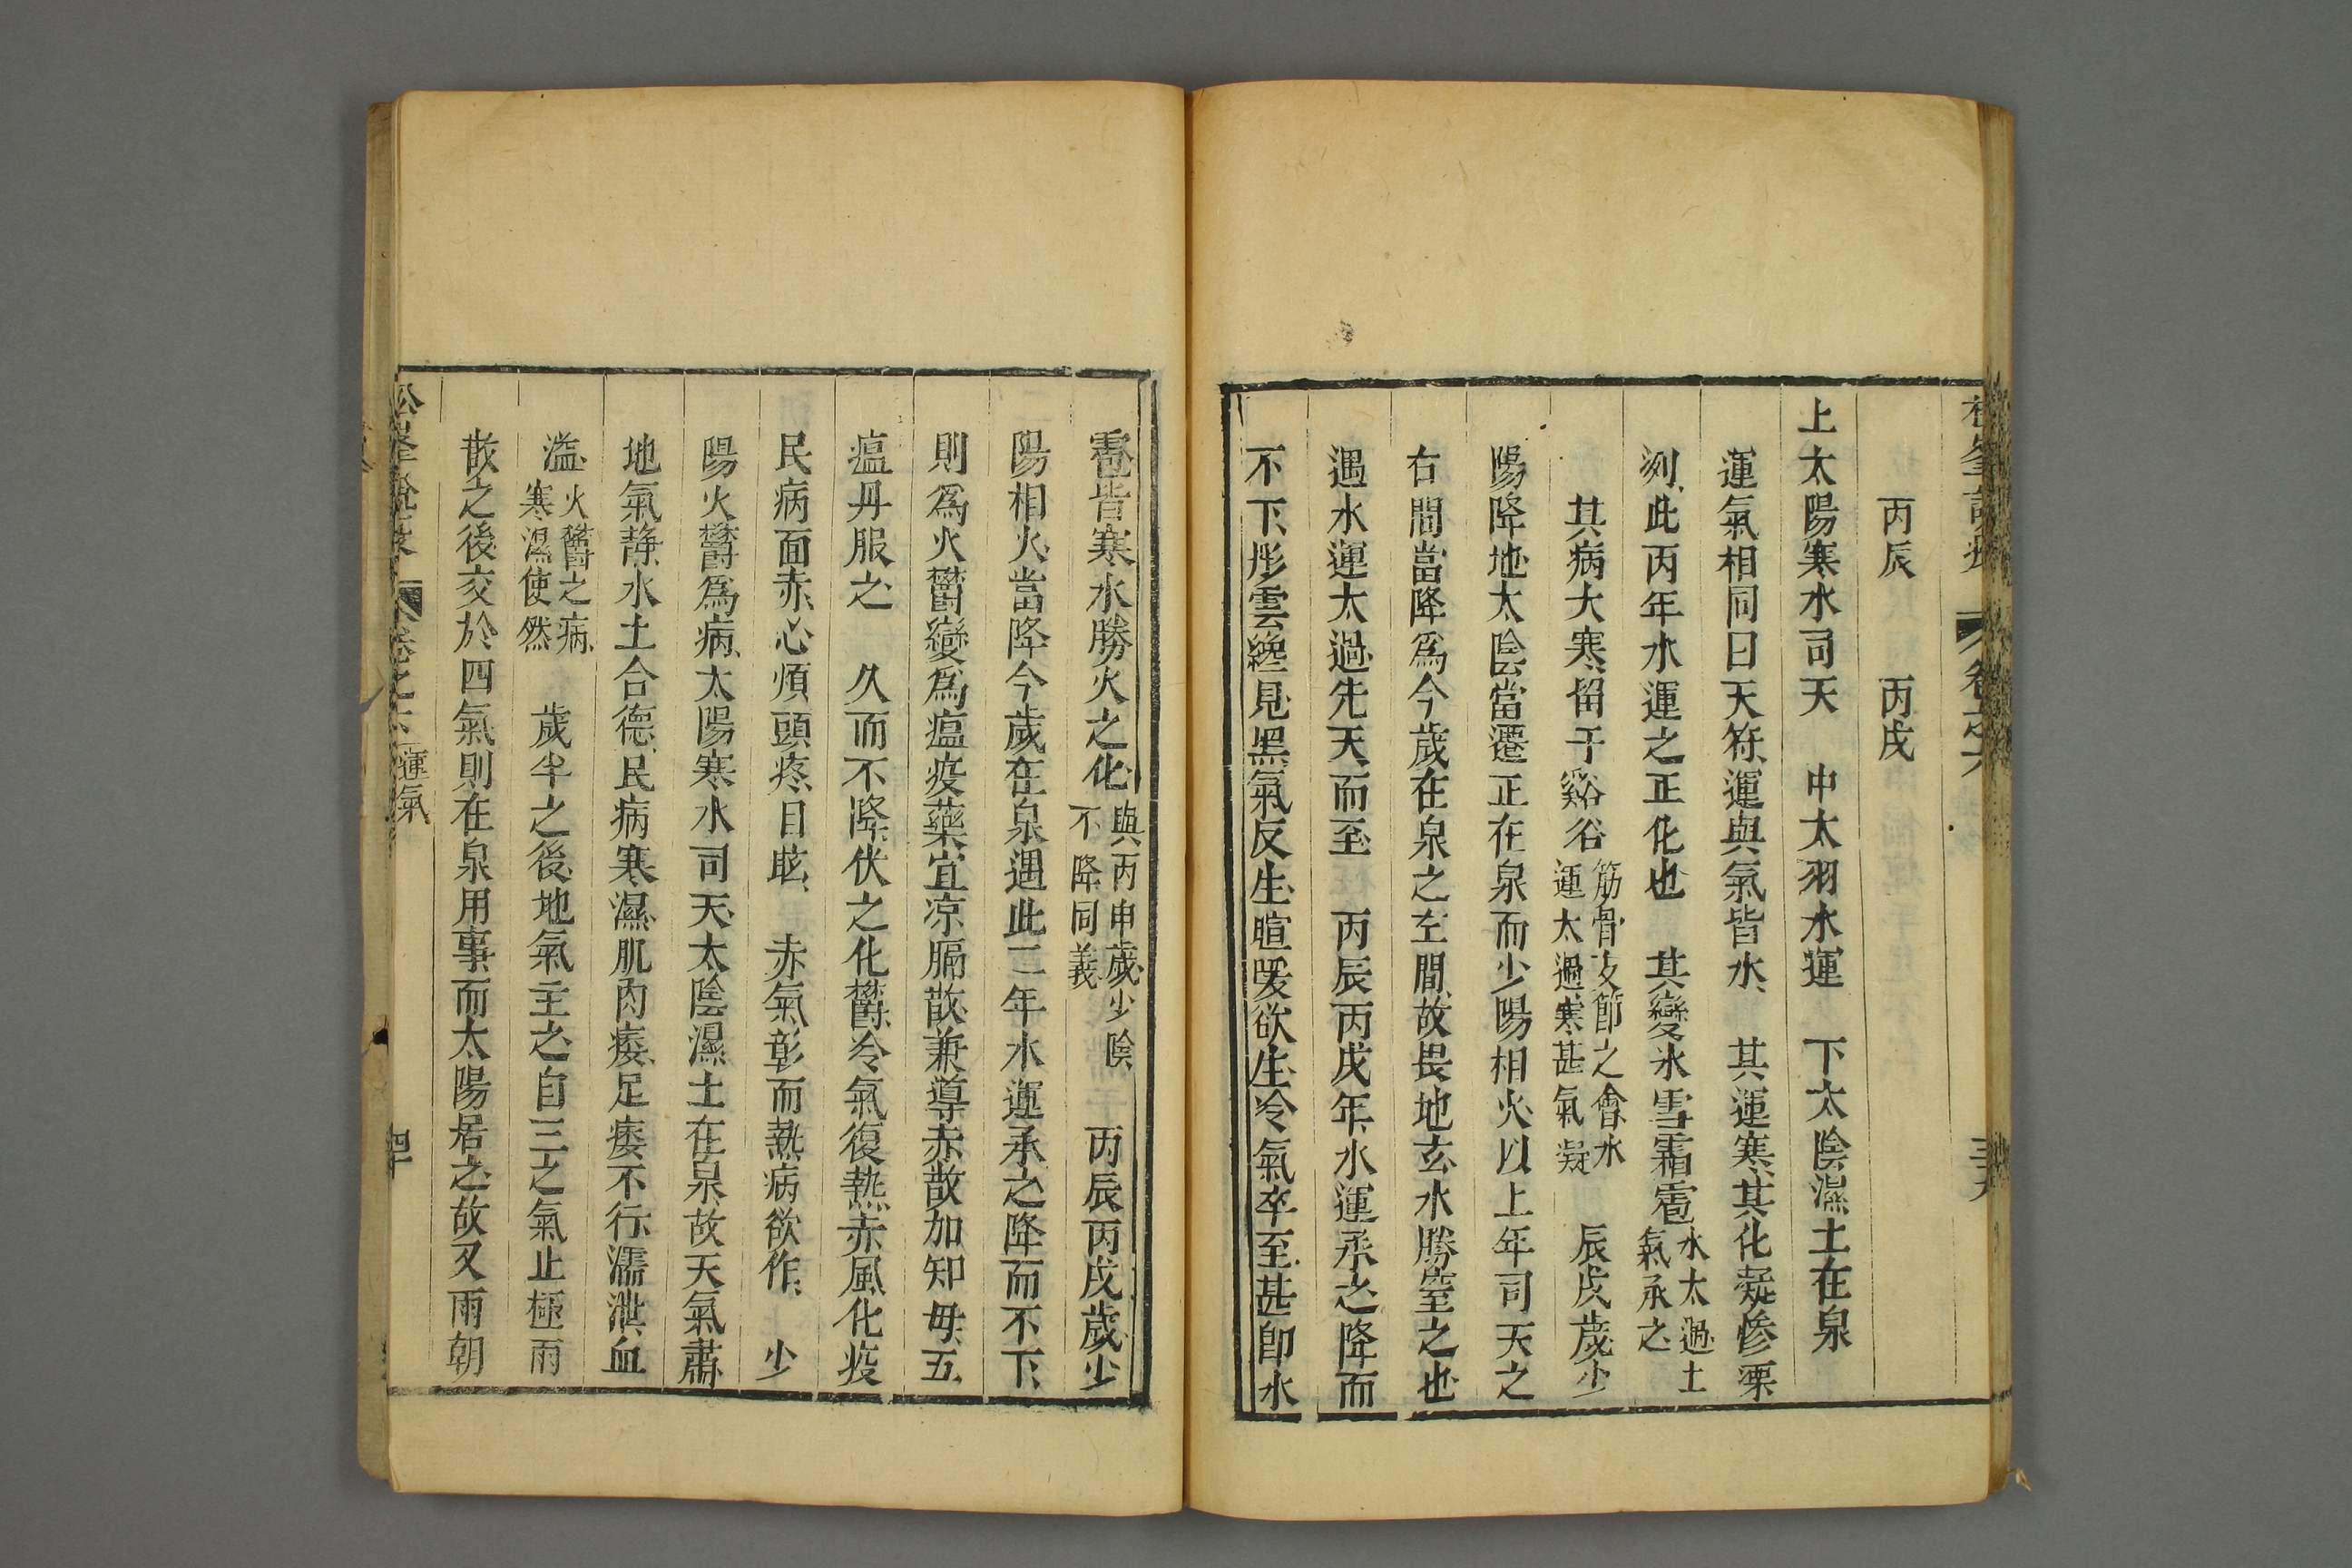 丙辰　丙戌
上太陽寒水司天　中太羽水運　下太陰濕土在泉
運氣相同曰天符運與氣皆水　其運寒其化凝慘凓
冽此丙年水運之正化也　其變冰雪霜雹水太過土氣承之
其病大寒留于谿谷筋骨支節之會水運太過寒甚氣凝　辰戌歲少
陽降地太陰當遷正在泉而少陽相火以上年司天之
右間當降為今歲在泉之左間故畏地玄水勝窒之也
遇水運太過先天而至　丙辰丙戌年水運承之降而
不下彤雲纔見黑氣反生暄暖欲生冷氣卒至甚即水
雹皆寒水勝火之化與丙申歲少陰不降同義　丙辰丙戌歲少
陽相火當降今歲在泉遇此二年水運承之降而不下
則為火鬱變為瘟疫藥宜凉膈散兼導赤散加知毋五
瘟丹服之　久而不降伏之化鬱冷氣復熱赤風化疫
民病面赤心煩頭疼目眩　赤氣彰而熱病欲作　少
陽火鬱為病太陽寒水司天太陰濕土在泉故天氣肅
地氣静水土合德民病寒濕肌肉痿足痿不行濡泄血
溢火鬱之病寒濕使然　歲半之後地氣主之自三之氣止極雨
散之後交於四氣則在泉用事而太陽居之故又雨朝
松峯說疫　卷之六　運氣　四十